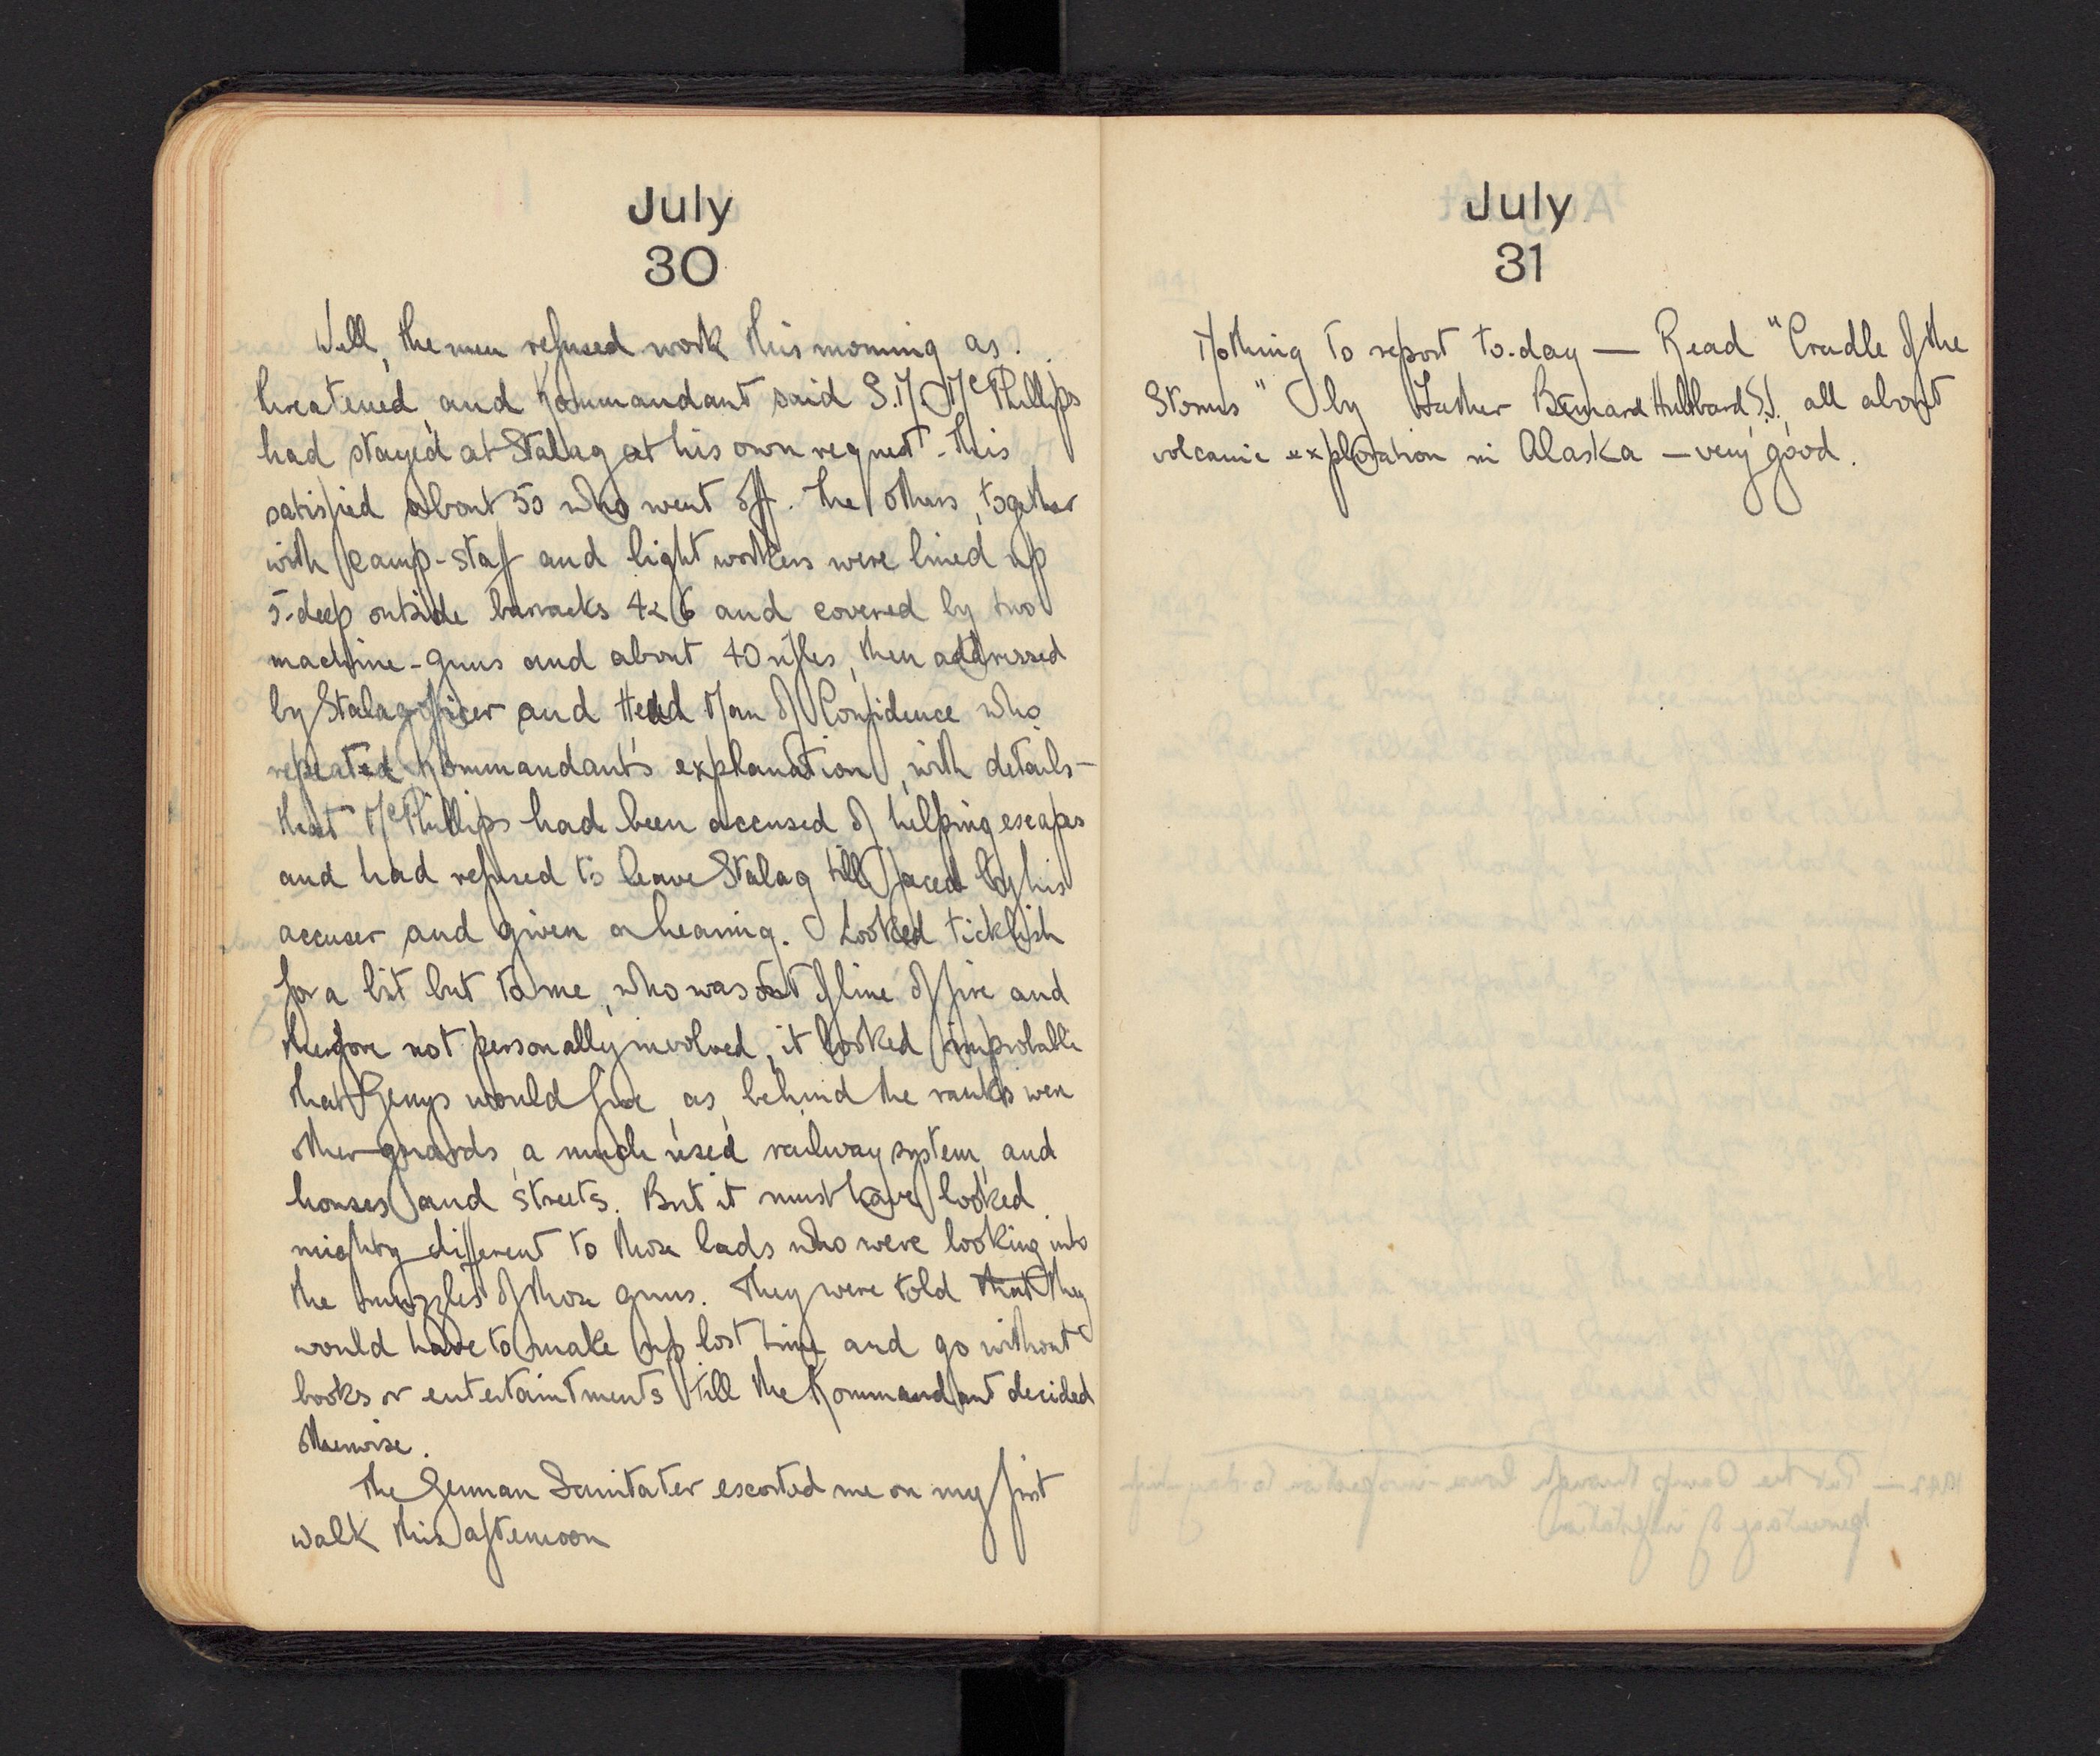 July
30
Well, the men refused work this morning as
threatened, and Kommandant said S.M. McPhillips
had stayed at Stalag at his own request - this
satisfied about 50 who went off. The others, together
with camp-staff and light workers were lined up
5-deep outside barracks 4 & 6 and covered by two
machine-guns and about 40 rifles, then addressed
by Stalag officer and Head Man of Confidence who
repeated Kommandant's explanation, with details -
that McPhillips had been accused of helping escapes
and had refused to leave Stalag till faced by his
accuser and given a hearing. Looked ticklish
for a bit but to me, who was out of line of fire and
therefore not personally involved, it looked improbable
that Gerrys would fire, as, behind the ranks were
other guards, a much used railway system, and
houses and streets. But it must have looked
mighty different to those lads who were looking into
the muzzles of those guns. They were told that they
would have to make up lost time and go without
books or entertaintments till the Kommandant decided
otherwise.
The German Sanitater escorted me on my first
walk this afternoon
July
31
Nothing to report to-day — Read "Cradle of the
Storms" by Father Bernard Hubbard S.J. all about
volcanic exploration in Alaska — very good.